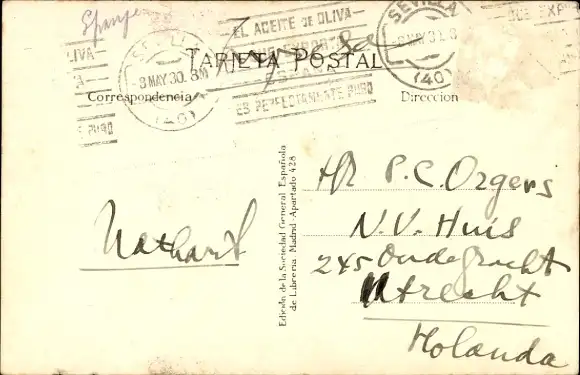 Spanje
SEVILLA
EL ACEITE DE OLIVA
SEVILLA
TARJETA POSTAL
-8 MAY 30. 8M
(40)
ES PERFECTAMENTE PURO
(40)
Correspondencia
Dirección
Edición de la Sociedad General Española
de Librería Madrid-Apartado 428
Hr P.C. Orgers
N.V. Huis
245 Oudegracht
Utrecht
Holanda